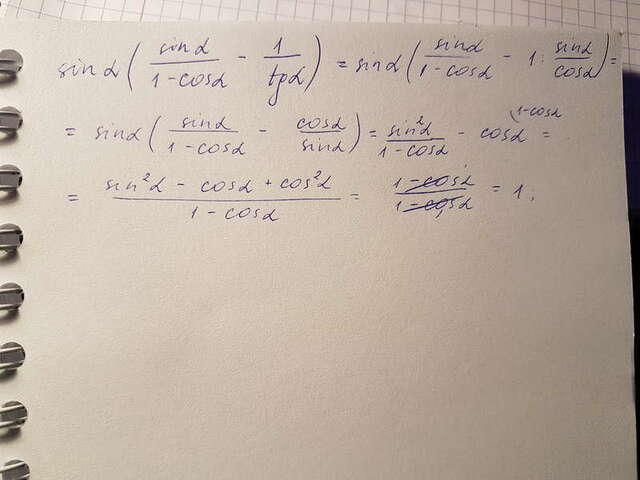 sinα ( sinα / 1-cosα - 1 / tgα ) = sinα ( sinα / 1-cosα - 1 : sinα / cosα ) =
= sinα ( sinα / 1-cosα - cosα / sinα ) = sin²α / 1-cosα - cosα (1-cosα =
= sin²α - cosα + cos²α / 1-cosα = 1-cosα / 1-cosα = 1;